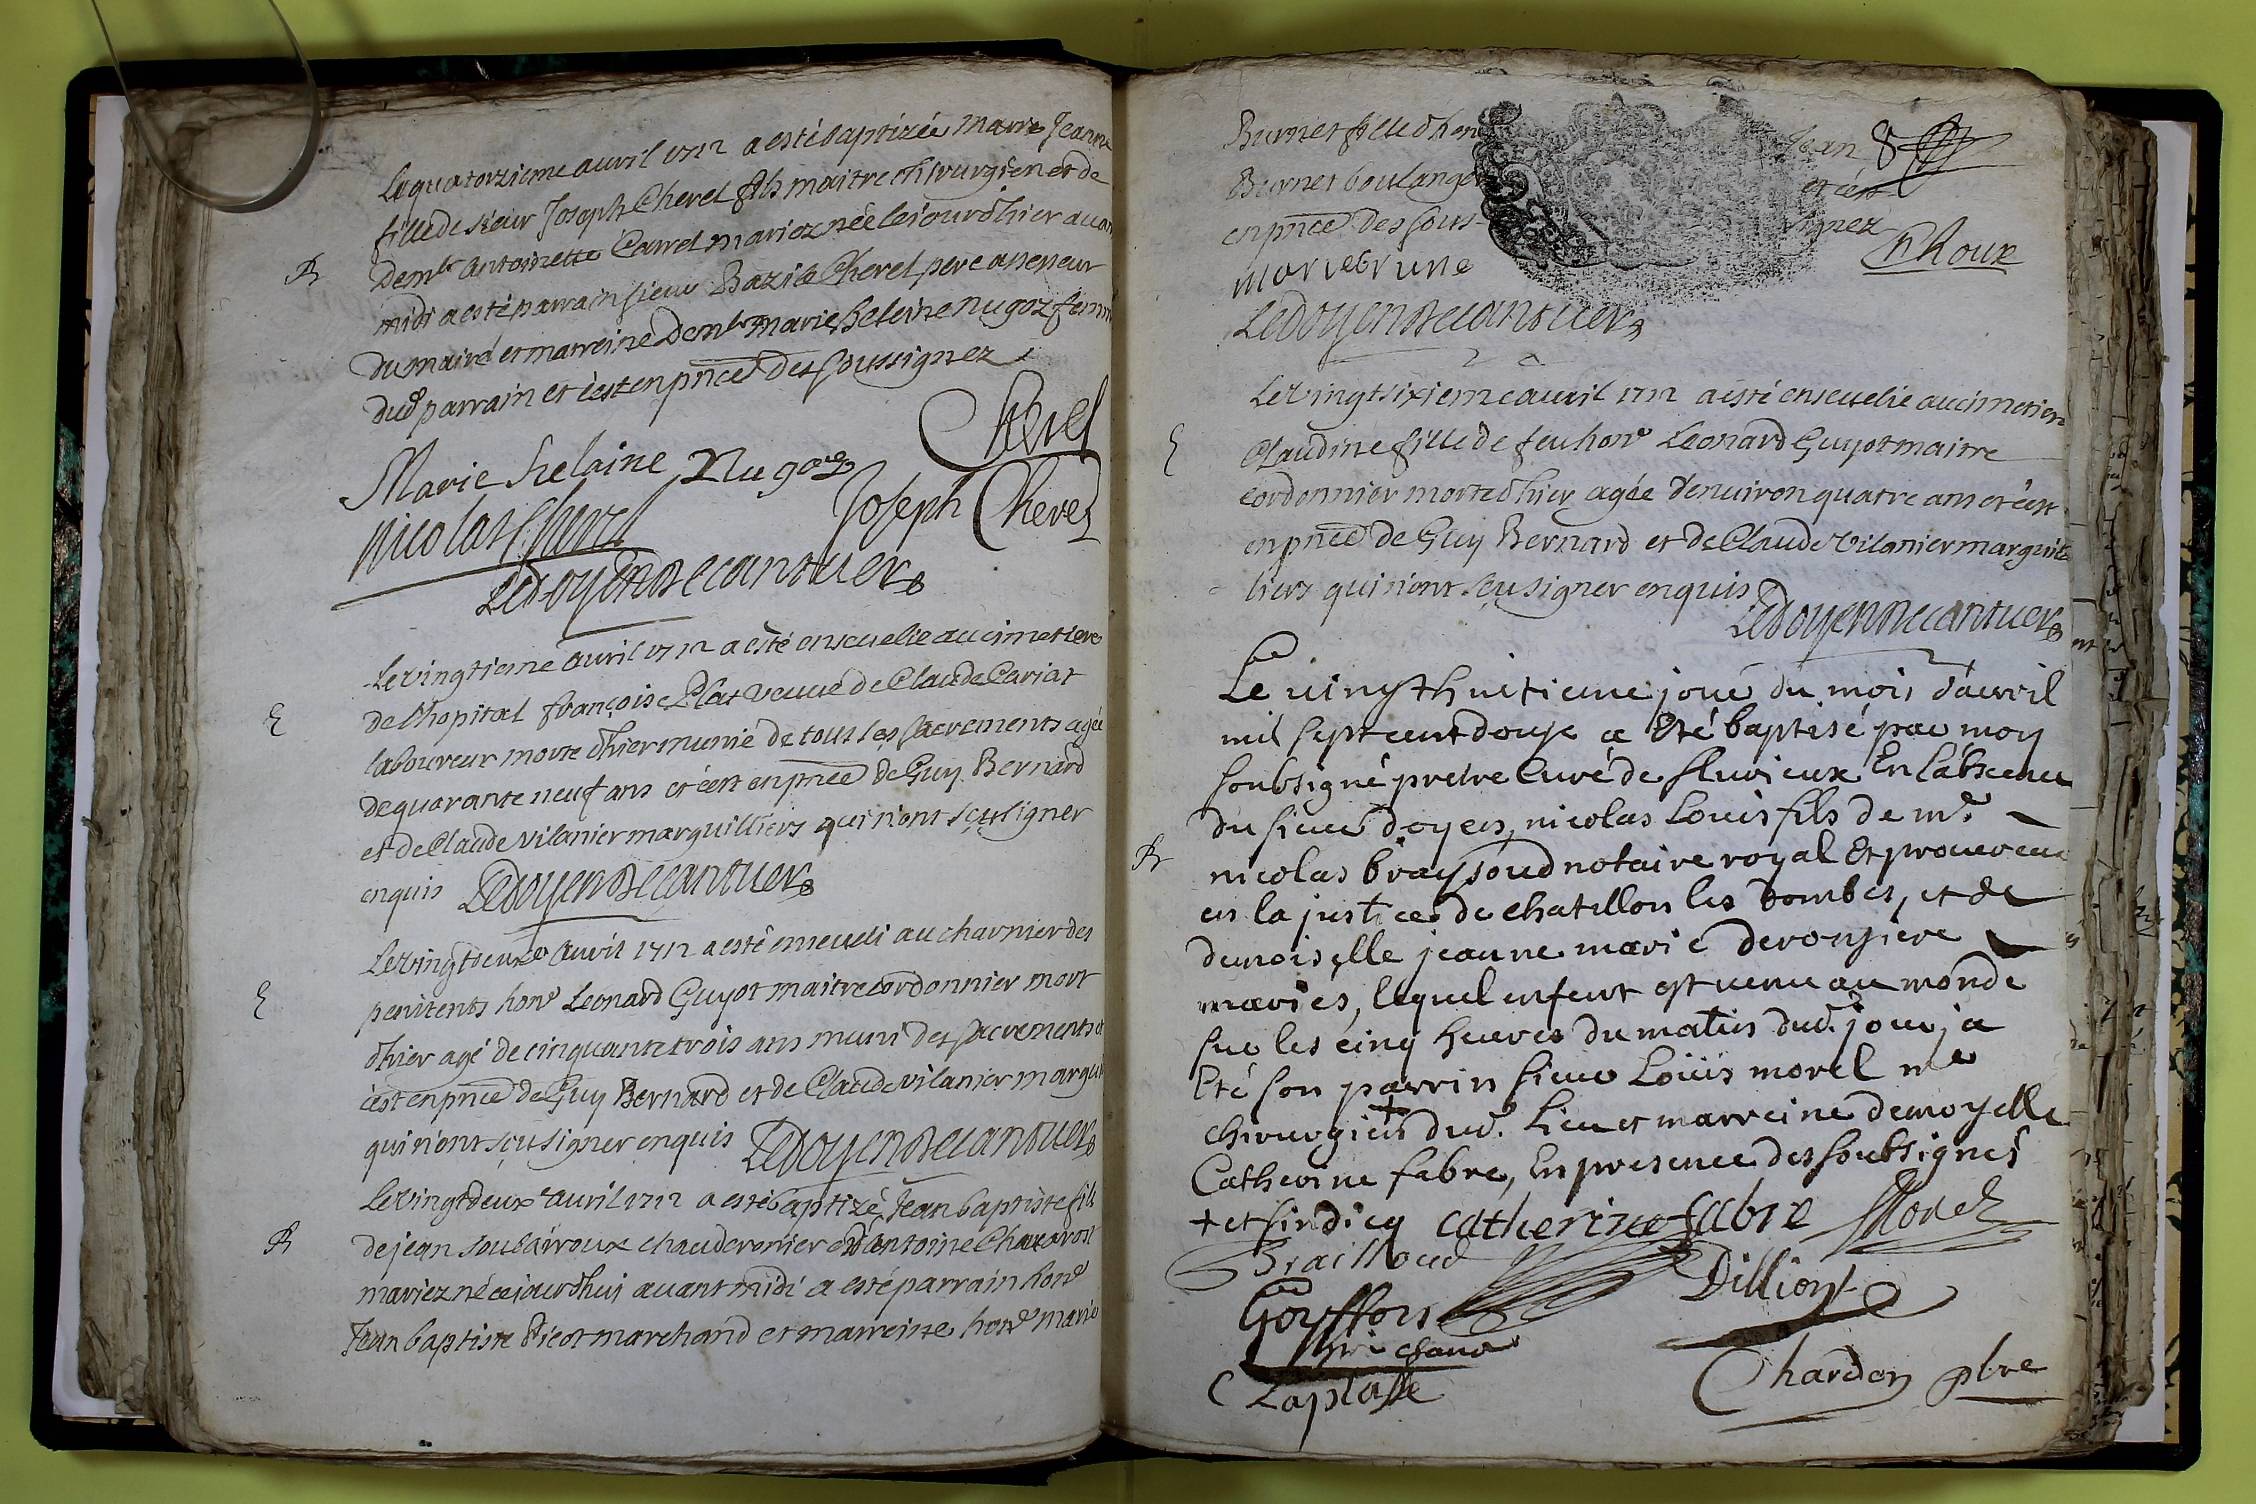 Le quatorzieme auvril 1712 a esté baptizée marie Jeanne
fille de sieur Joseph Cherel fils maitre chirurgien et de
B demlle antoinette Carrel mariez née le jourdhier avan
midi a esté parrain sieur Bazile Cherel pere assesseur
du maire et marreine demlle marie heleine nugoz femme
dud parrain et c'est en pnce des soussignez
Cherel
Marie helaine Nugoz
nicolas Cherel Joseph Cherel
Ledoyen decantuer
Le vingtieme auvril 1712 a esté ensevelie au cimetiere
E de l'hopital françoise Plat veuve de Claude Cariat
laboureur morte d'hier munie de tous les sacrements agée
de quarante neuf ans et c'est en pnce de Guy Bernard
et de Claude vilanier marguilliers qui n'ont sçu signer
enquis Ledoyen decantuer
Le vingtdeuxe auvril 1712 a esté enseveli au charnier des
E penitents hone Leonard Guyot maitre cordonnier mort
d'hier agé de cinquante trois ans muni des sacrements et
c'est en pnce de Guy Bernard et de Claude vilanier margui
qui n'ont sçu signer enquis Ledoyen decantuer
Le vingtdeuxe auvril 1712 a esté baptizé Jean baptiste fils
B de jean soubairoux chauderonier et d'antoine
mariez né ce jourdhui avant midi a esté parrain hone
Jean baptiste marchand et marreine hone marie
Burnet fille d'hon Jean
Burnet boulanger et c'est
en pnce des sous- signez
marie brune Roux
Ledoyen decantuer
Le vingtsixieme auvril 1712 a esté ensevelie au cimetiere
E Claudine fille de feu hone Leonard Guyot maitre
cordonnier morte d'hier agée d'environ quatre ans et c'est
en pnce de Guy Bernard et de Claude vilanier marguil
liers qui n'ont sçu signer enquis
Ledoyen decantuer
Le vingt huitieme jour du mois d'avvril
mil sept cent douze a Eté baptisé par moy
soubsigné pretre Curé de fluvieux En l'absence
du sieur doyen, nicolas Louis fils de me
B nicolas brayssoud notaire royal Et procureur
en la justice de chatillon les dombes, et de
demoiselle jeanne marie
mariés, lequel enfent est venu au monde
sur les cinq heures du matin dud. jour, a
Eté son parrin sieur Loüis morel me
chirurgien + dud. Lieu et marreine demoyelle
Catherine fabre, En presence des soubsignés
+ et sindicq catherine fabre Morel
Braissoud
Goyffon Dilliont
C Laplasse Chardon pbre